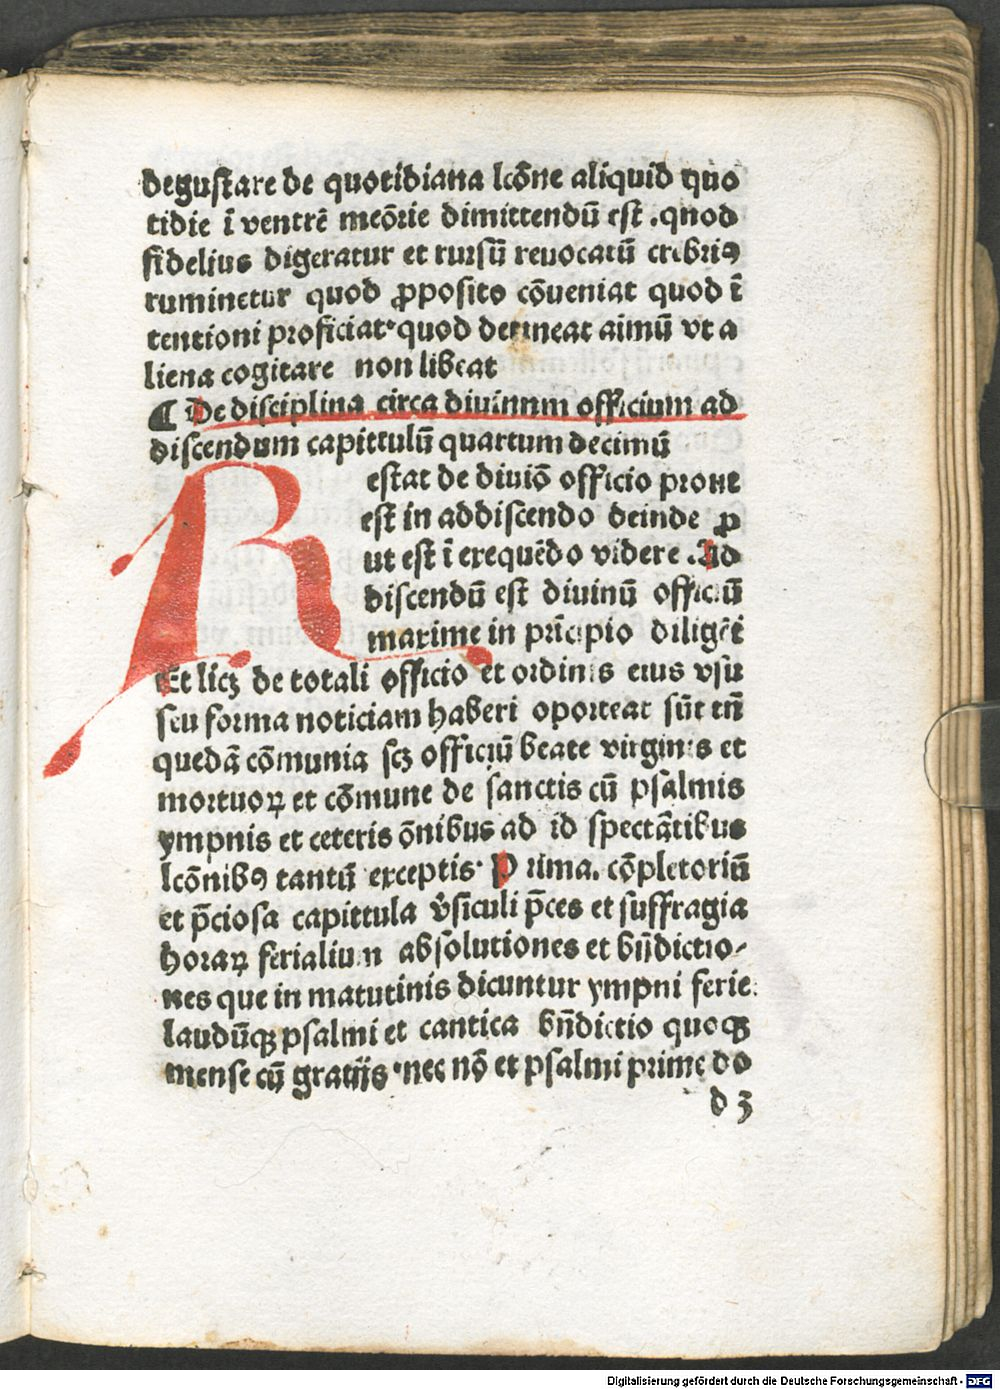 degustare de quotidiana lcōne aliquid quo
tidie ī ventrē meōrie dimittendū est .quod
fidelius digeratur et rursū reuocatū crebriꝰ
ruminetur quod ꝓposito cōueniat quod ī
tentioni proficiat·quod detineat aimū vt a
liena cogitare non libeat
¶ De disciplina circa diuinum officium ad
discendum capittulū quartum decimū
Restat de diuiō officio prout
est in addiscendo deinde ꝓ
ut est ī exequēdo videre .Ad
discendū est diuinū officiū
maxime in prīcipio diligēt
Et licꝫ de totali officio et ordinis eius vsu
seu forma noticiam haberi oporteat sūt tn̄
quedā cōmunia scꝫ officiū beate virginis et
mortuoꝝ et cōmune de sanctis cū psalmis
ympnis et ceteris ōnibus ad id spectātibus
lcōnibꝰ tantū exceptis· Prima. cōpletoriū
et p̄ciosa capittula v̄siculi p̄ces et suffragia
horaꝝ ferialium absolutiones et bn̄dictio⸗
nes que in matutinis dicuntur ympni ferie.
laudūqꝫ psalmi et cantica bn̄dictio quoqꝫ
mense cū gratijs ·nec nō et psalmi prime do
d 3
Digitalisierung gefördert durch die Deutsche Forschungsgemeinschaft - DFG